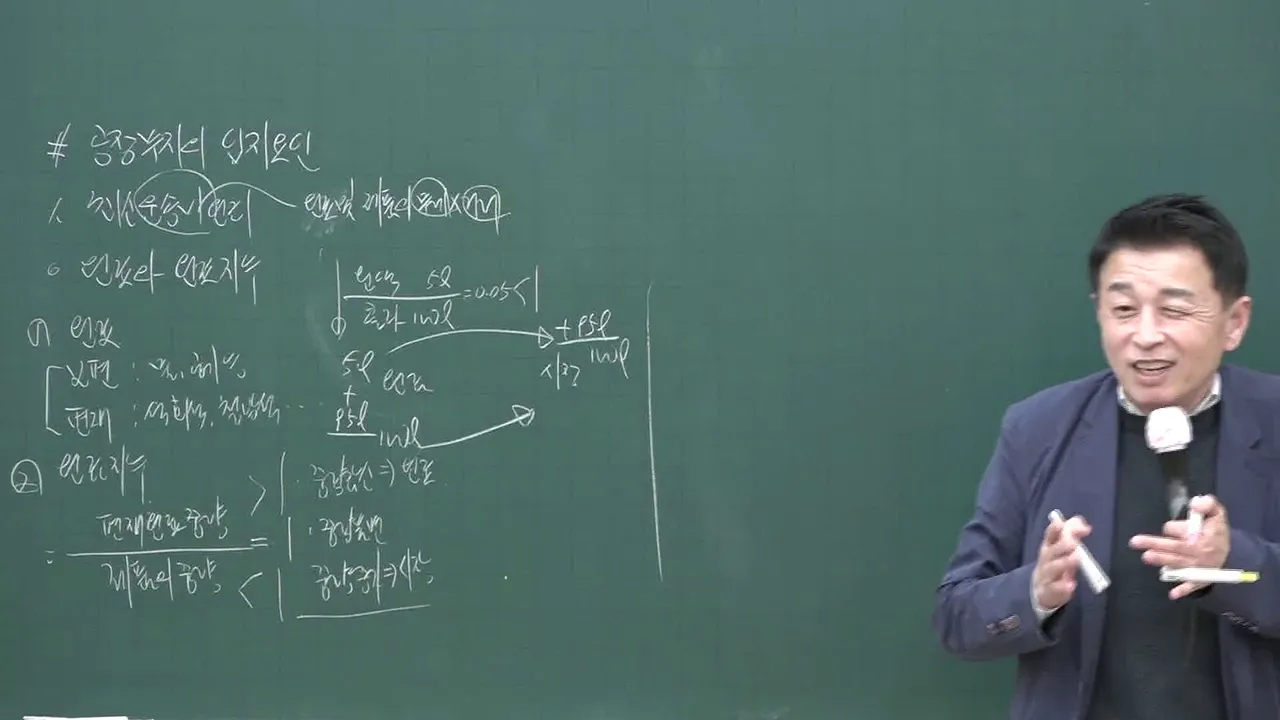 # 공장부지의 입지요인
1. 최소수송비원리 원료및 제품의 무게 × 거리
○ 원료와 원료지수
① 원료
보편 : 물, 
편재 : 석회석, 철광석 …
② 원료지수
= 편재원료중량 / 제품의 중량
> 1 · 중량감소 ⇒ 원료
= 1 · 중량불변
< 1 중량증가 ⇒ 시장
원액 5l / 콜라 100l = 0.05 < 1
5l 원료
+
95l
100l
+ 95l
시장 100l